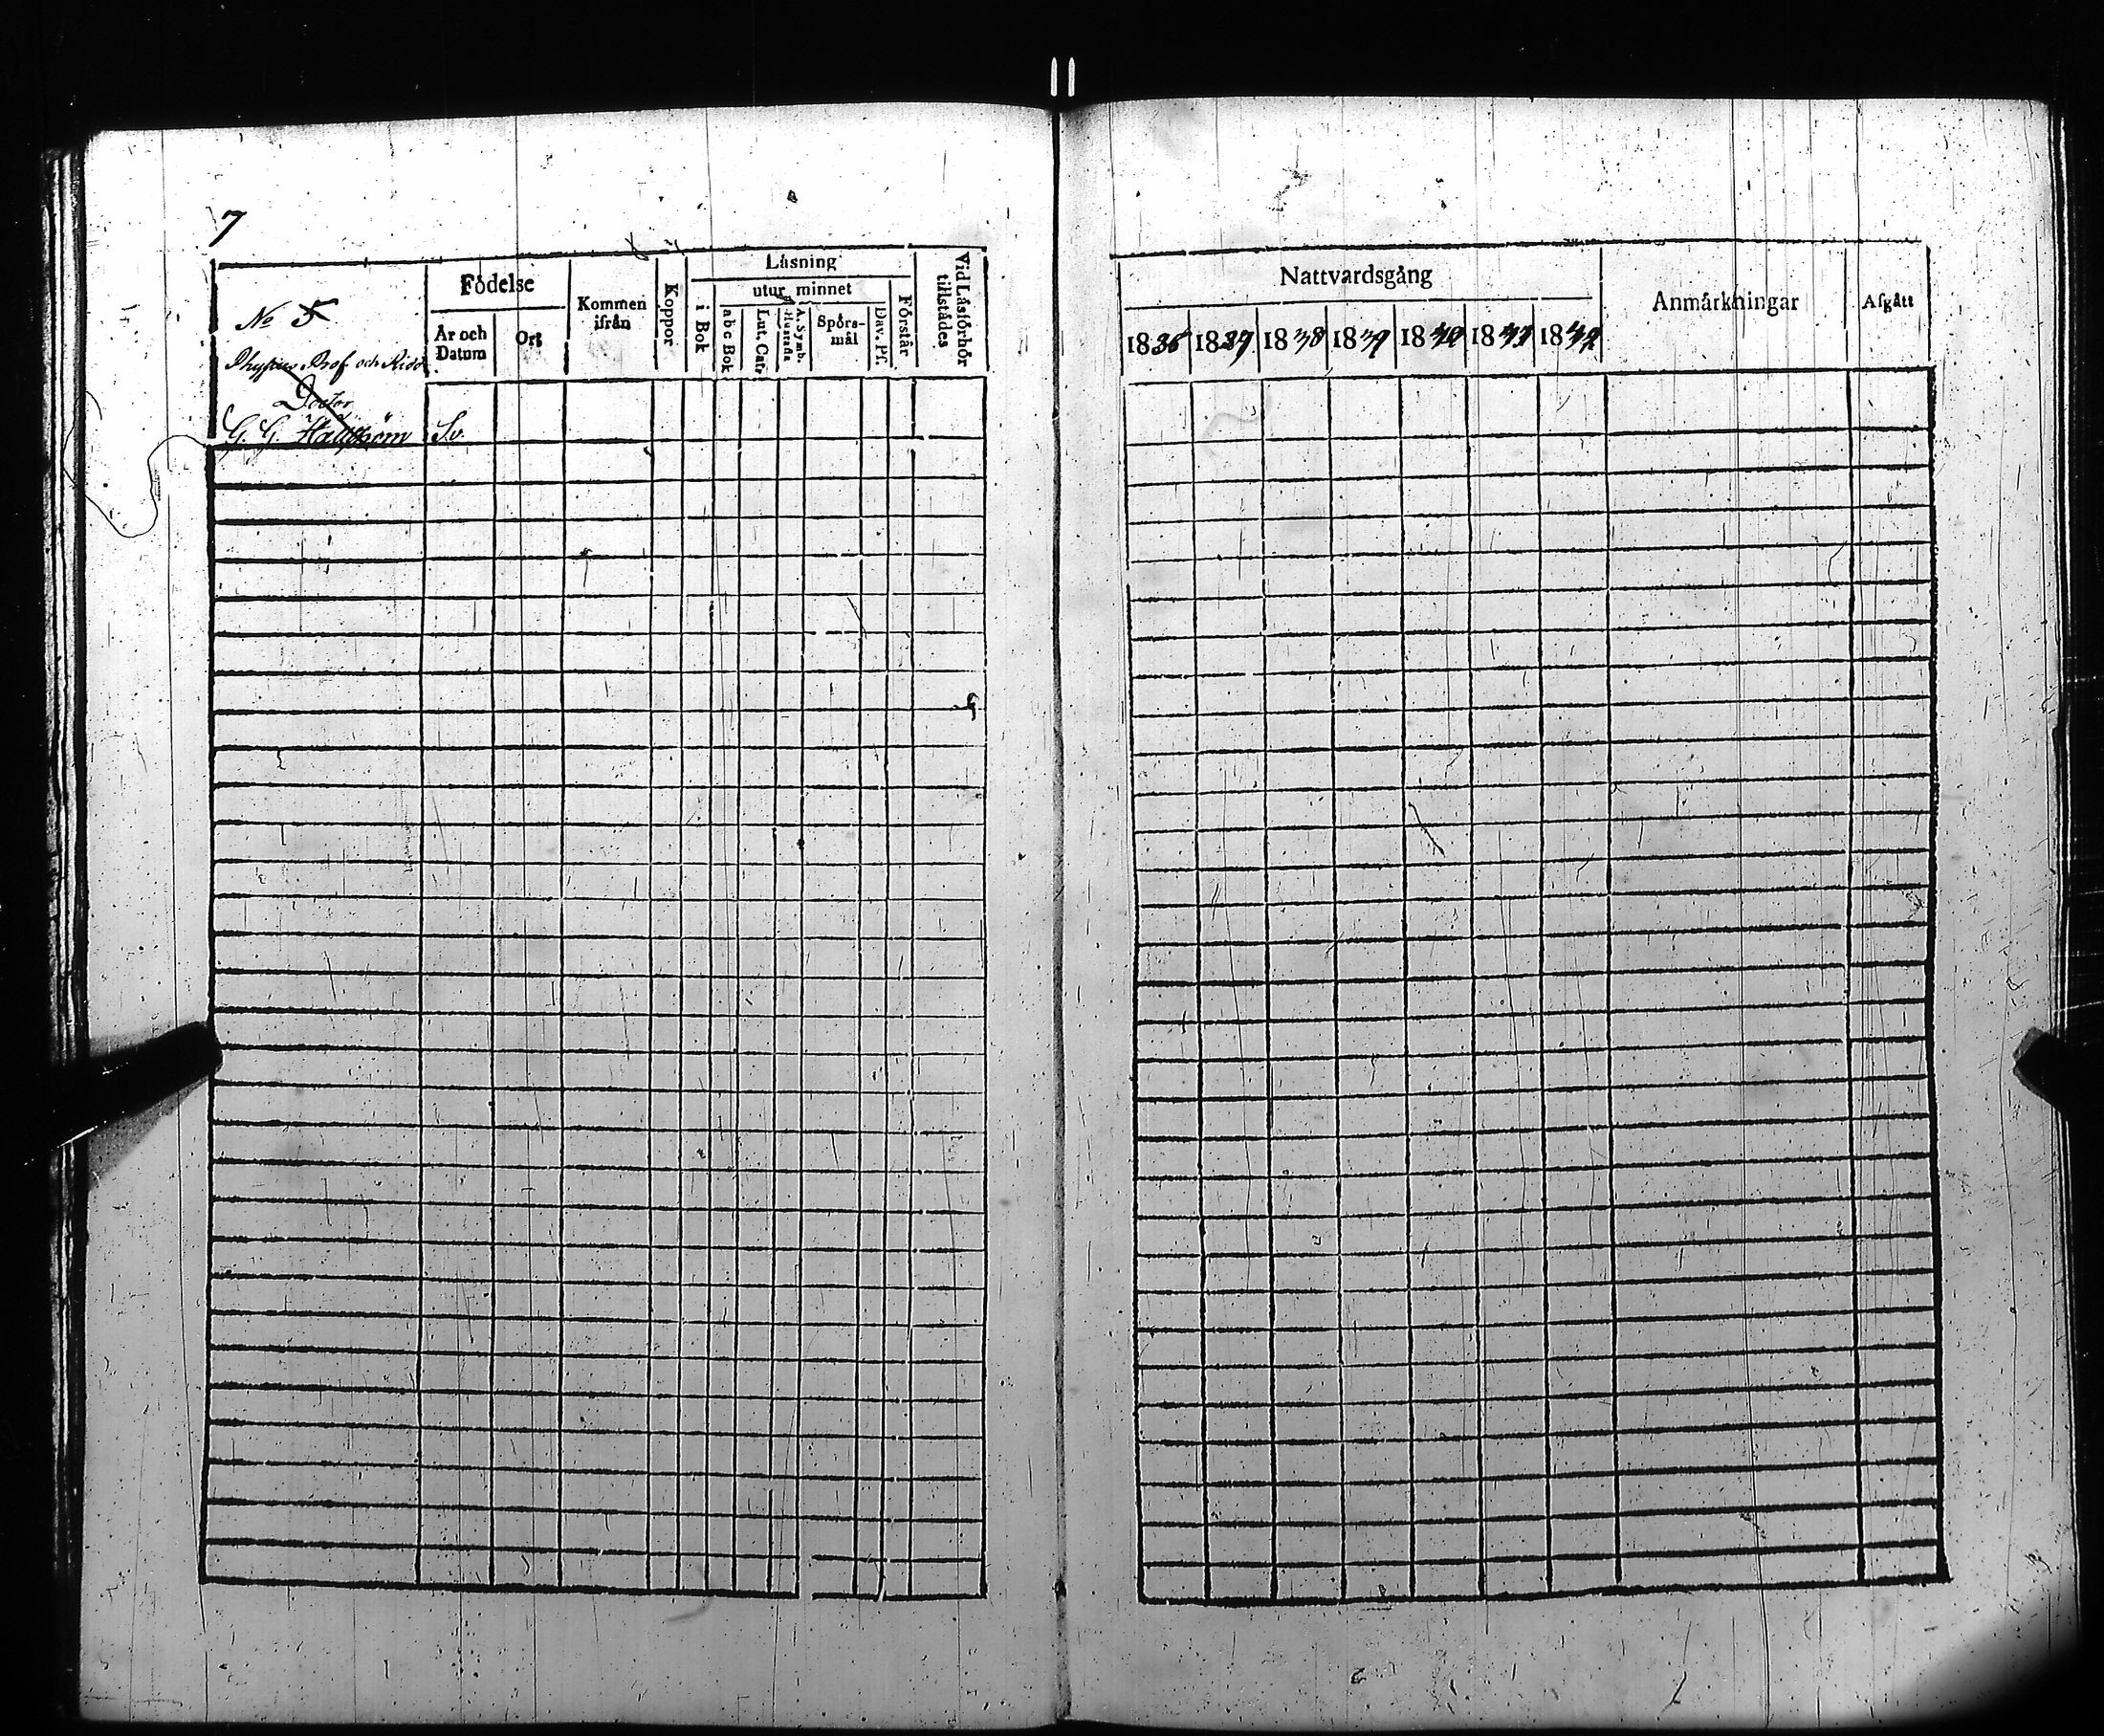 7
No 5
Physices Prof. och Ridd.
Doctor
G. G. Hällström Sv.
Födelse
År och Datum
Ort
Kommen ifrån
Koppor
Läsning
i Bok
utur minnet
abc Bok
Lut. Cat.
A. Symb. Hustafla
Spörs-mål
Dav. Ps.
Förstår
Vid Läsförhör tillstådes
Nattvardsgång
1836 1837 1838 1839 1840 1841 1842
Anmärkningar
Afgått